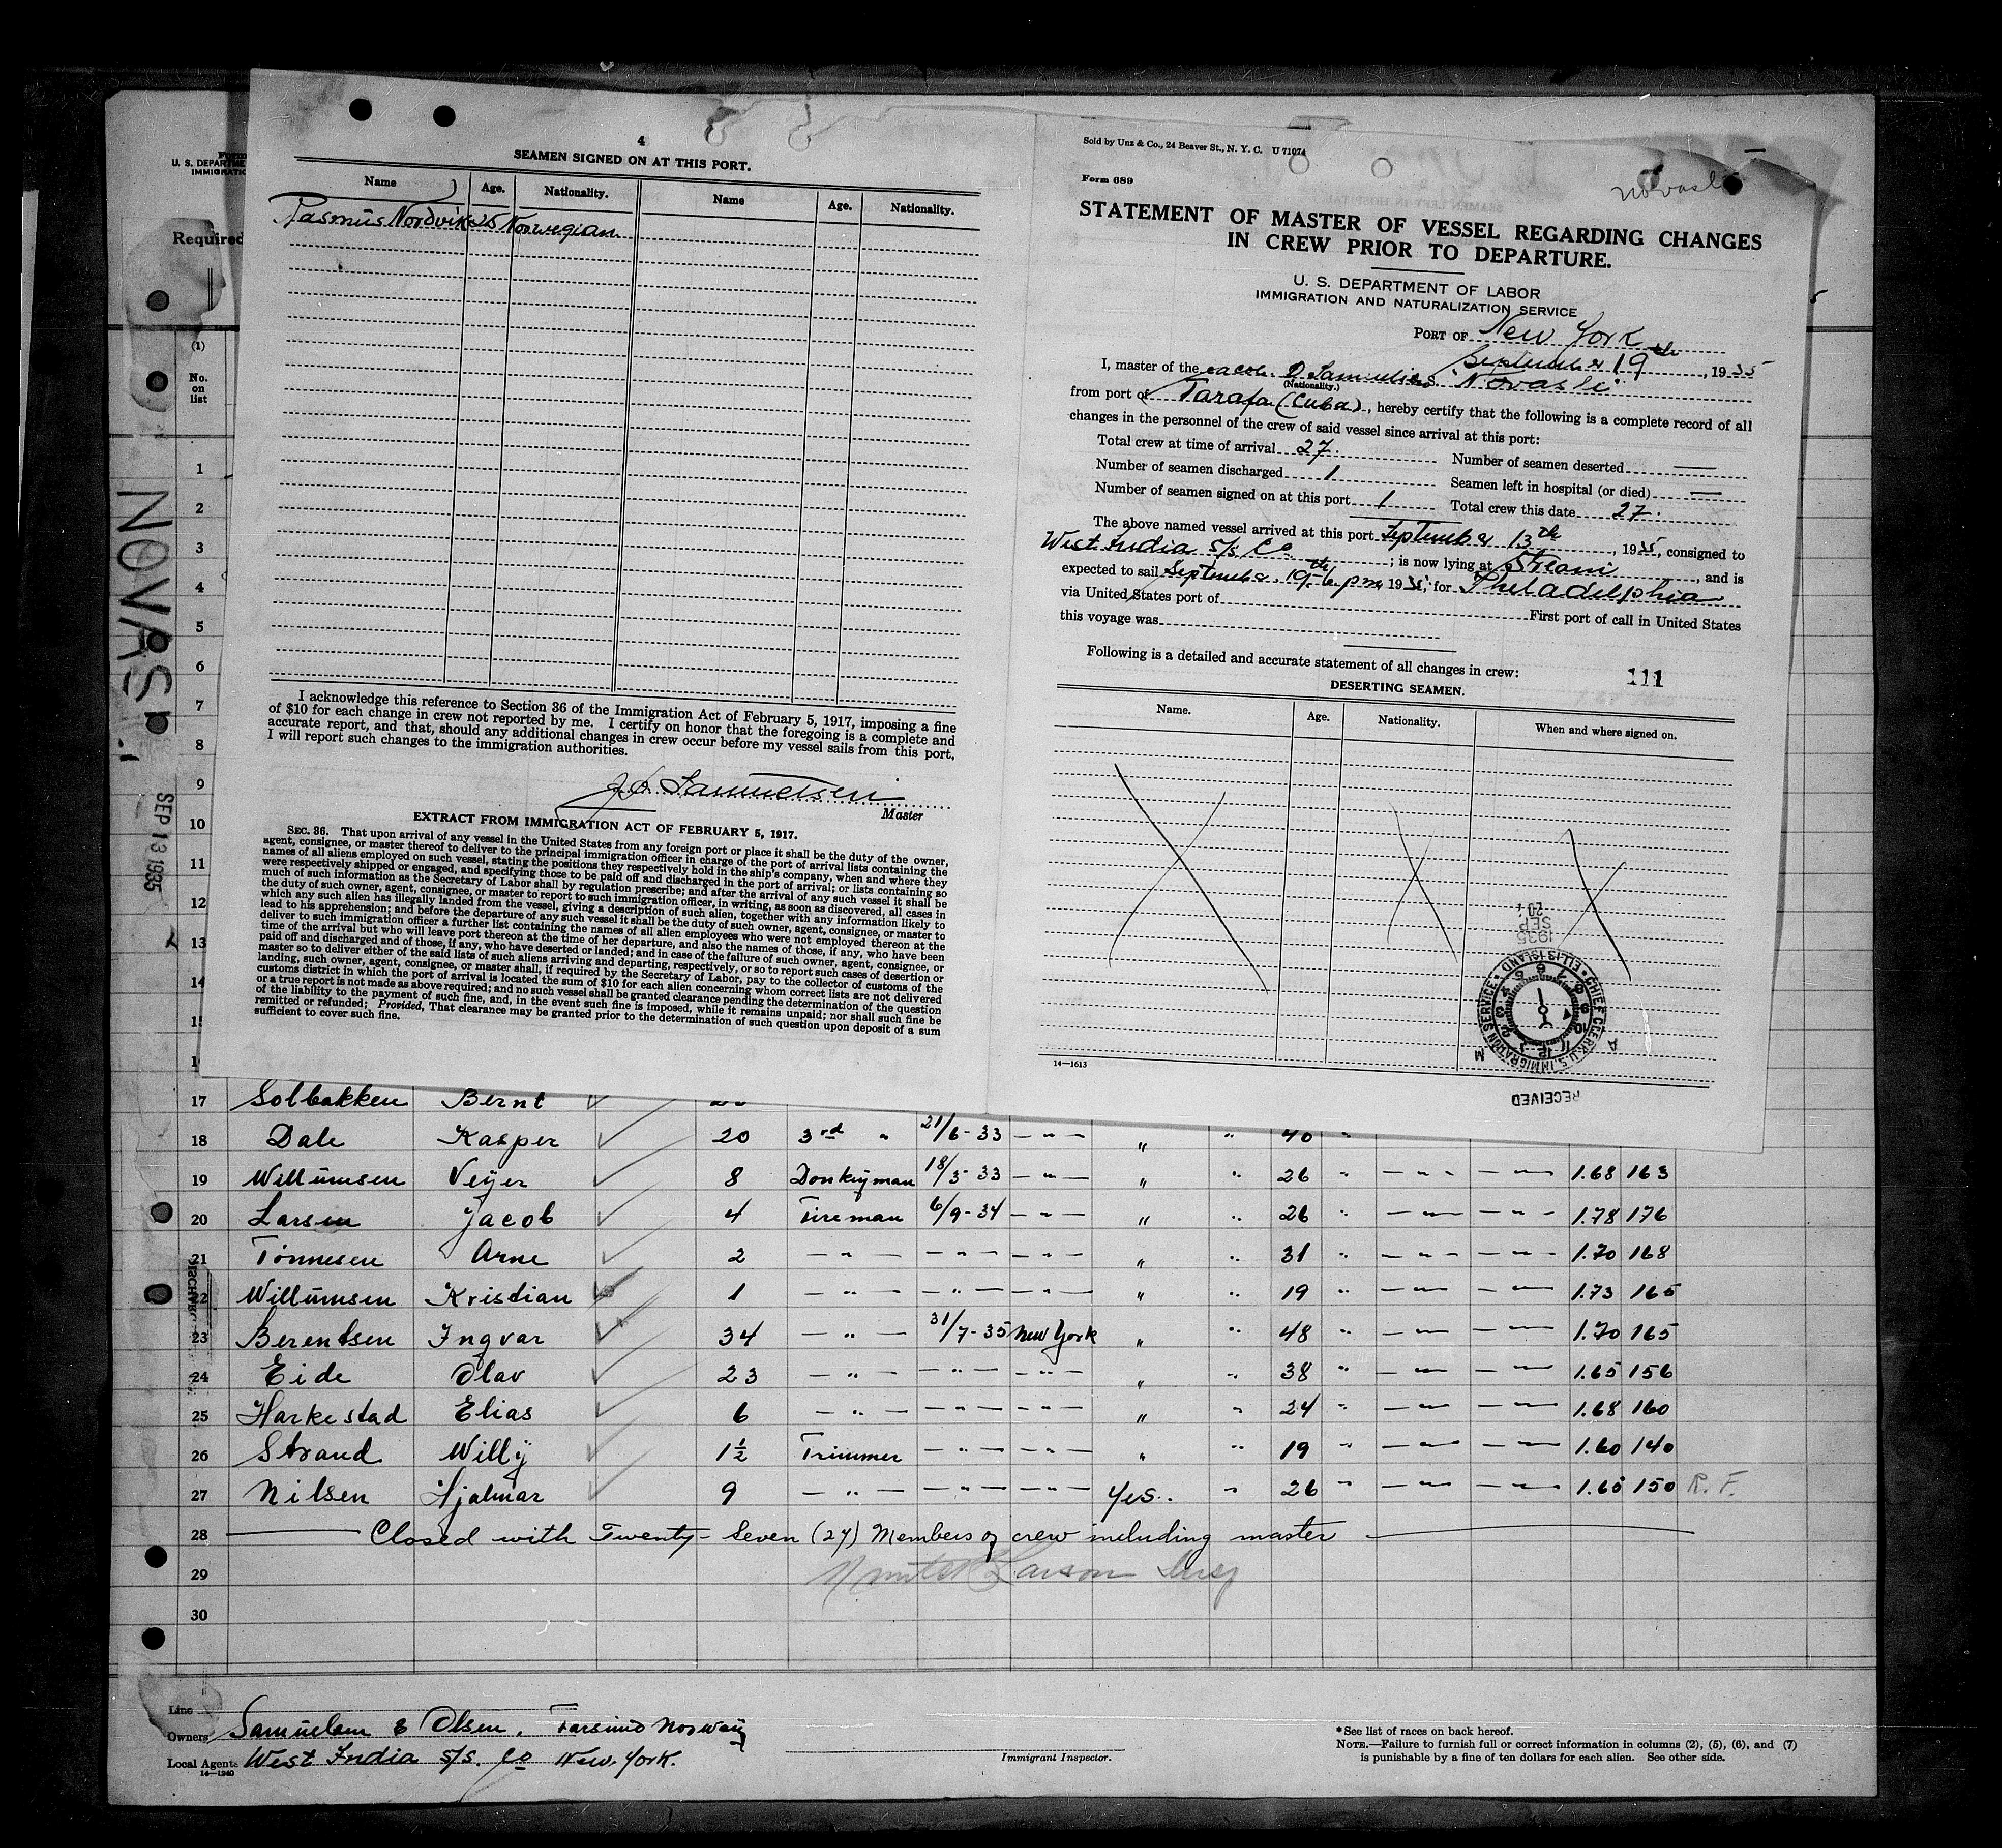 4
SEAMEN SIGNED ON AT THIS PORT.
Name Age. Nationality. Name Age. Nationality.
Rasmus Nordvik 26 Norwegian
I acknowledge this reference to Section 36 of the Immigration Act of February 5, 1917, imposing a fine
of $10 for each change in crew not reported by me. I certify on honor that the foregoing is a complete and
accurate report, and that, should any additional changes in crew occur before my vessel sails from this port,
I will report such changes to the immigration authorities.
J. D. Samuelsen
Master
EXTRACT FROM IMMIGRATION ACT OF FEBRUARY 5, 1917.
SEC. 36. That upon arrival of any vessel in the United States from any foreign port or place it shall be the duty of the owner,
agent, consignee, or master thereof to deliver to the principal immigration officer in charge of the port of arrival lists containing the
names of all aliens employed on such vessel, stating the positions they respectively hold in the ship's company, when and where they
were respectively shipped or engaged, and specifying those to be paid off and discharged in the port of arrival; or lists containing so
much of such information as the Secretary of Labor shall by regulation prescribe; and after the arrival of any such vessel it shall be
the duty of such owner, agent, consignee, or master to report to such immigration officer, in writing, as soon as discovered, all cases in
which any such alien has illegally landed from the vessel, giving a description of such alien, together with any information likely to
lead to his apprehension; and before the departure of any such vessel it shall be the duty of such owner, agent, consignee, or master to
deliver to such immigration officer a further list containing the names of all alien employees who were not employed thereon at the
time of the arrival but who will leave port thereon at the time of her departure, and also the names of those, if any, who have been
paid off and discharged and of those, if any, who have deserted or landed; and in case of the failure of such owner, agent, consignee, or
master so to deliver either of the said lists of such aliens arriving and departing, respectively, or so to report such cases of desertion or
landing, such owner, agent, consignee, or master shall, if required by the Secretary of Labor, pay to the collector of customs of the
customs district in which the port of arrival is located the sum of $10 for each alien concerning whom correct lists are not delivered
or a true report is not made as above required; and no such vessel shall be granted clearance pending the determination of the question
of the liability to the payment of such fine, and, in the event such fine is imposed, while it remains unpaid; nor shall such fine be
remitted or refunded; Provided, That clearance may be granted prior to the determination of such question upon deposit of a sum
sufficient to cover such fine.
Sold by Unz & Co., 24 Beaver St., N. Y. C. U 71074
Form 689
Novasli
STATEMENT OF MASTER OF VESSEL REGARDING CHANGES
IN CREW PRIOR TO DEPARTURE.
U. S. DEPARTMENT OF LABOR
IMMIGRATION AND NATURALIZATION SERVICE
PORT OF New York
September 19th, 1935
I, master of the Jacob D Samuelsen S. Novasli
(Nationality.)
from port of Tarafa (Cuba), hereby certify that the following is a complete record of all
changes in the personnel of the crew of said vessel since arrival at this port:
Total crew at time of arrival 27. Number of seamen deserted —
Number of seamen discharged 1 Seamen left in hospital (or died) —
Number of seamen signed on at this port 1 Total crew this date 27.
The above named vessel arrived at this port September 13th, 1935, consigned to
West India S/S Co ; is now lying at Stream, and is
expected to sail September 19th 6 pm 1935; for Philadelphia
via United States port of First port of call in United States
this voyage was
Following is a detailed and accurate statement of all changes in crew:
111
DESERTING SEAMEN.
Name. Age. Nationality. When and where signed on.
1935
SEP
20
CHIEF CLERK U.S. IMMIGRATION SERVICE • ELLIS ISLAND •
A M
RECEIVED
14—1613
Form
U. S. DEPARTME
IMMIGRATIO
Required
(1)
No.
on
list
NOVASLI
SEP 13 1935
1
2
3
4
5
6
7
8
9
10
11
12
13
14
17 Solbakken Bernt
18 Dale Kasper 20 3rd " 21/6-33 — " — " " 40 "
19 Willumsen Veijer 8 Donkeyman 18/3-33 — " — " " 26 " — " — — " — 1.68 163
20 Larsen Jacob 4 Fireman 6/9-34 — " — " " 26 " — " — — " — 1.78 176
21 Tönnesen Arne 2 — " — — " — — " — " " 31 " — " — — " — 1.70 168
22 Willumsen Kristian 1 — " — — " — — " — " " 19 " — " — — " — 1.73 165
23 Berentsen Ingvar 34 — " — 31/7-35 New York " " 48 " — " — — " — 1.70 165
24 Eide Olav 23 — " — — " — — " — " " 38 " — " — — " — 1.65 156
25 Harkestad Elias 6 — " — — " — — " — " " 24 " — " — — " — 1.68 160
26 Strand Willy 1½ Trimmer — " — — " — " " 19 " — " — — " — 1.60 140
27 Nilsen Hjalmar 9 — " — — " — — " — Yes.. " 26 " — " — — " — 1.65 150 R. F.
28 Closed with Twenty-Seven (27) Members of crew including master
29 Larson Insp
30
Line
Owners Samuelsen & Olsen, Farsund Norway
Local Agents West India S/S. Co New. York.
14—1240
Immigrant Inspector.
*See list of races on back hereof.
NOTE.—Failure to furnish full or correct information in columns (2), (5), (6), and (7)
is punishable by a fine of ten dollars for each alien. See other side.